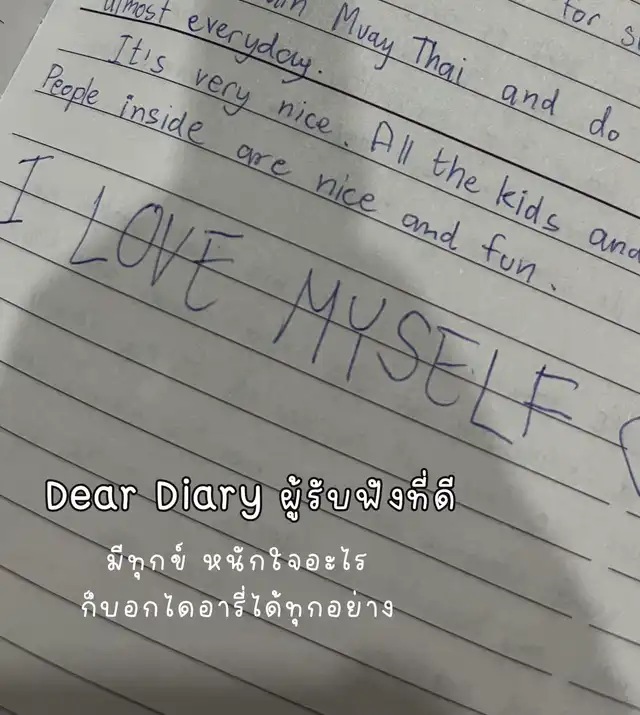 Muay Thai and do
almost everyday.
It's very nice. All the kids and
People inside are nice and fun.
I LOVE MYSELF
Dear Diary ผู้รับฟังที่ดี
มีทุกข์ หนักใจอะไร
ก็บอกไดอารี่ได้ทุกอย่าง